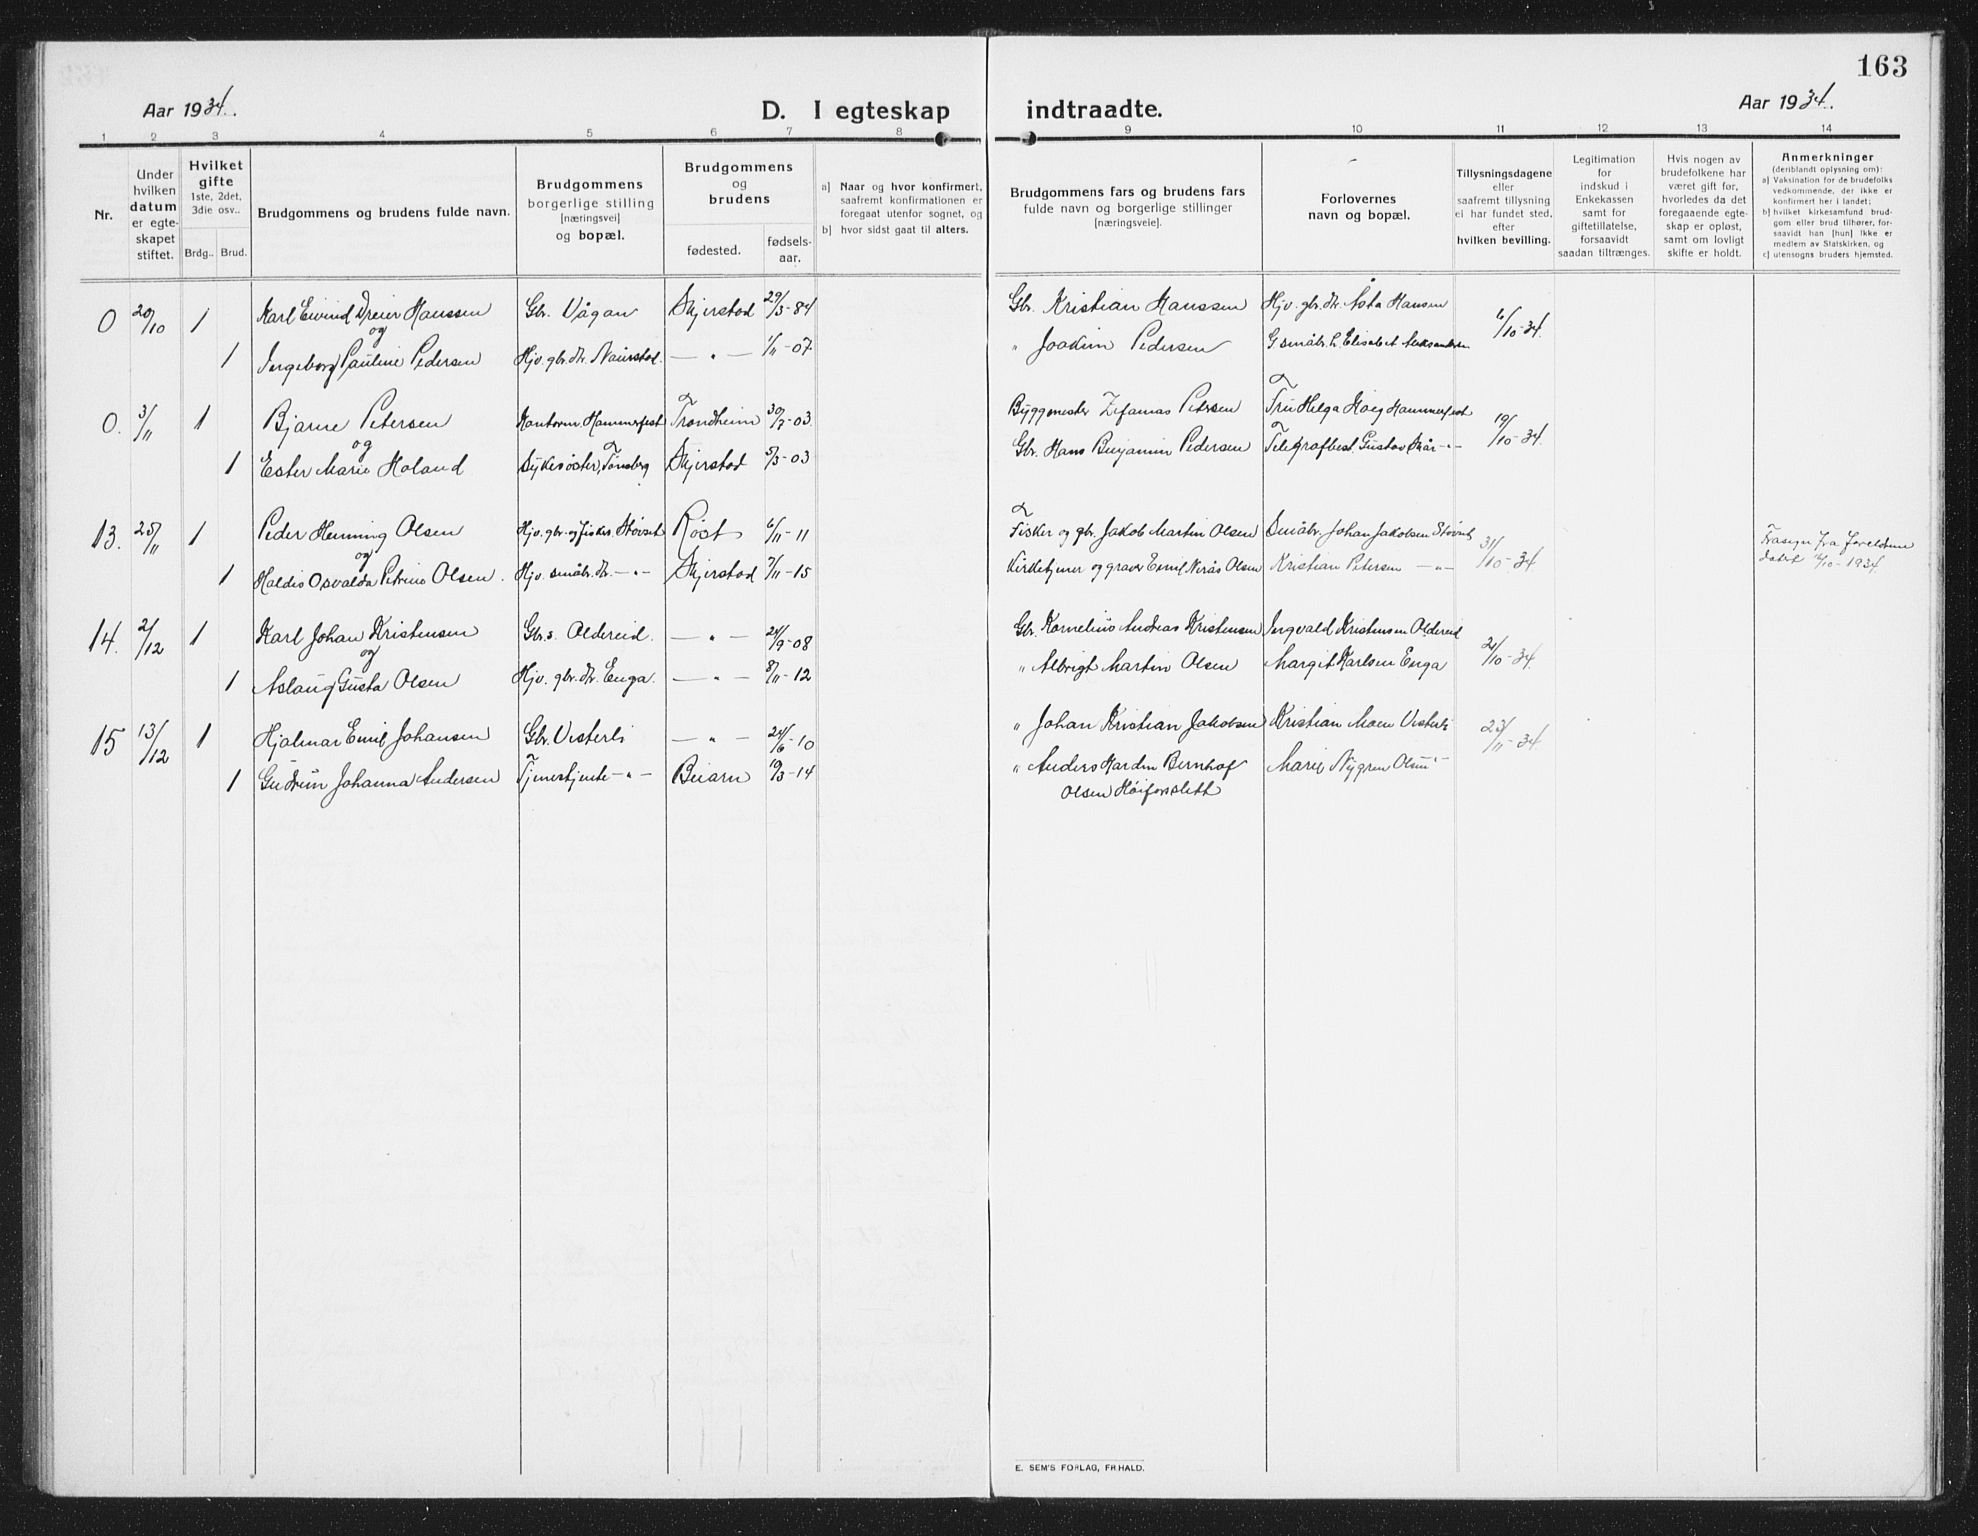 163
Aar 1934.
D. I egteskap indtraadte.
Aar 1934.
1 2 3 4 5 6 7 8 9 10 11 12 13 14
Nr.
Under hvilken datum er egteskapet stiftet.
Hvilket gifte
1ste, 2det, 3die osv..
Brdg.. Brud.
Brudgommens og brudens fulde navn.
Brudgommens borgerlige stilling [næringsvei] og bopæl.
Brudgommens og brudens
fødested.
fødselsaar.
a] Naar og hvor konfirmert, saafremt konfirmationen er foregaat utenfor sognet, og
b] hvor sidst gaat til alters.
Brudgommens fars og brudens fars fulde navn og borgerlige stillinger [næringsveie].
Forlovernes navn og bopæl.
Tillysningsdagene eller saafremt tillysning ei har fundet sted, efter hvilken bevilling.
Legitimation for indskud i Enkekassen samt for giftetillatelse, forsaavidt saadan tiltrænges.
Hvis nogen av brudefolkene har været gift før, hvorledes da det foregaaende egteskap er opløst, samt om lovligt skifte er holdt.
Anmerkninger
(deriblandt oplysning om):
a] Vaksination for de brudefolks vedkommende, der ikke er konfirmert her i landet;
b] hvilket kirkesamfund brudgom eller brud tilhører, forsaavidt han [hun] ikke er medlem av Statskirken, og
c] utensogns bruders hjemsted.
0 20/10 1 Karl Eivind Dreier Hanssen Gbr. Vågan Skjerstad 29/3-84 Gbr. Kristian Hanssen Hjv. gbr. dr. Åsta Hansen 6/10-34.
og
1 Ingeborg Pauline Pedersen Hjv. gbr. dr. Naurstad. — " — 1/11-07 " Joakim Pedersen G småbr. h. Elisabet Aleksandersen
0. 3/11 1 Bjarne Petersen Kontorm. Hammerfest Trondheim 30/7-03 Byggmester Zefanias Petersen Fru Helga Hoeg Hammerfest 19/10-34.
og
1 Ester Marie Holand Sykesøster, Tønsberg Skjerstad 5/3-03 Gbr. Hans Benjamin Pedersen Telegrafbest. Gustav Skår - " -
13. 25/11 1 Peder Henning Olsen Hjv. gbr. og fisker. Støvset Røst 6/11-11 Fisker og gbr. Jakob Martin Olsen Småbr. Johan Jakobsen Støvset 31/10-34.
og
1 Haldis Osvalda Petrine Olsen. Hjv. småbr. dr. — " — Skjerstad 7/11-15 Kirketjener og graver Emil Nerås Olsen Kristian Petersen — " —
fra foreldrene
datert 14/10-1934.
14. 2/12 1 Karl Johan Kristensen Gbr. s. Oldereid. — " — 24/9-08 Gbr. Kornelius Andreas Kristensen Ingvald Kristensen Oldereid 21/10-34.
og
1 Aslaug Gusta Olsen Hjv. gbr. dr. Enga. — " — 8/11-12 " Albrigt Martin Olsen Margit Karlsen Enga
15 13/12 1 Hjalmar Emil Johansen Gbr. Vesterli — " — 24/6-10 " Johan Kristian Jakobsen Kristian Moen Vesterli 23/11-34.
1 Gudrun Johanna Andersen Tjenestjente - " - Beiarn 19/3-14 " Anders Hardin Bernhof Marie Nygren Olsen " -
Olsen Høiforsslett
E. SEM'S FORLAG, FR.HALD.